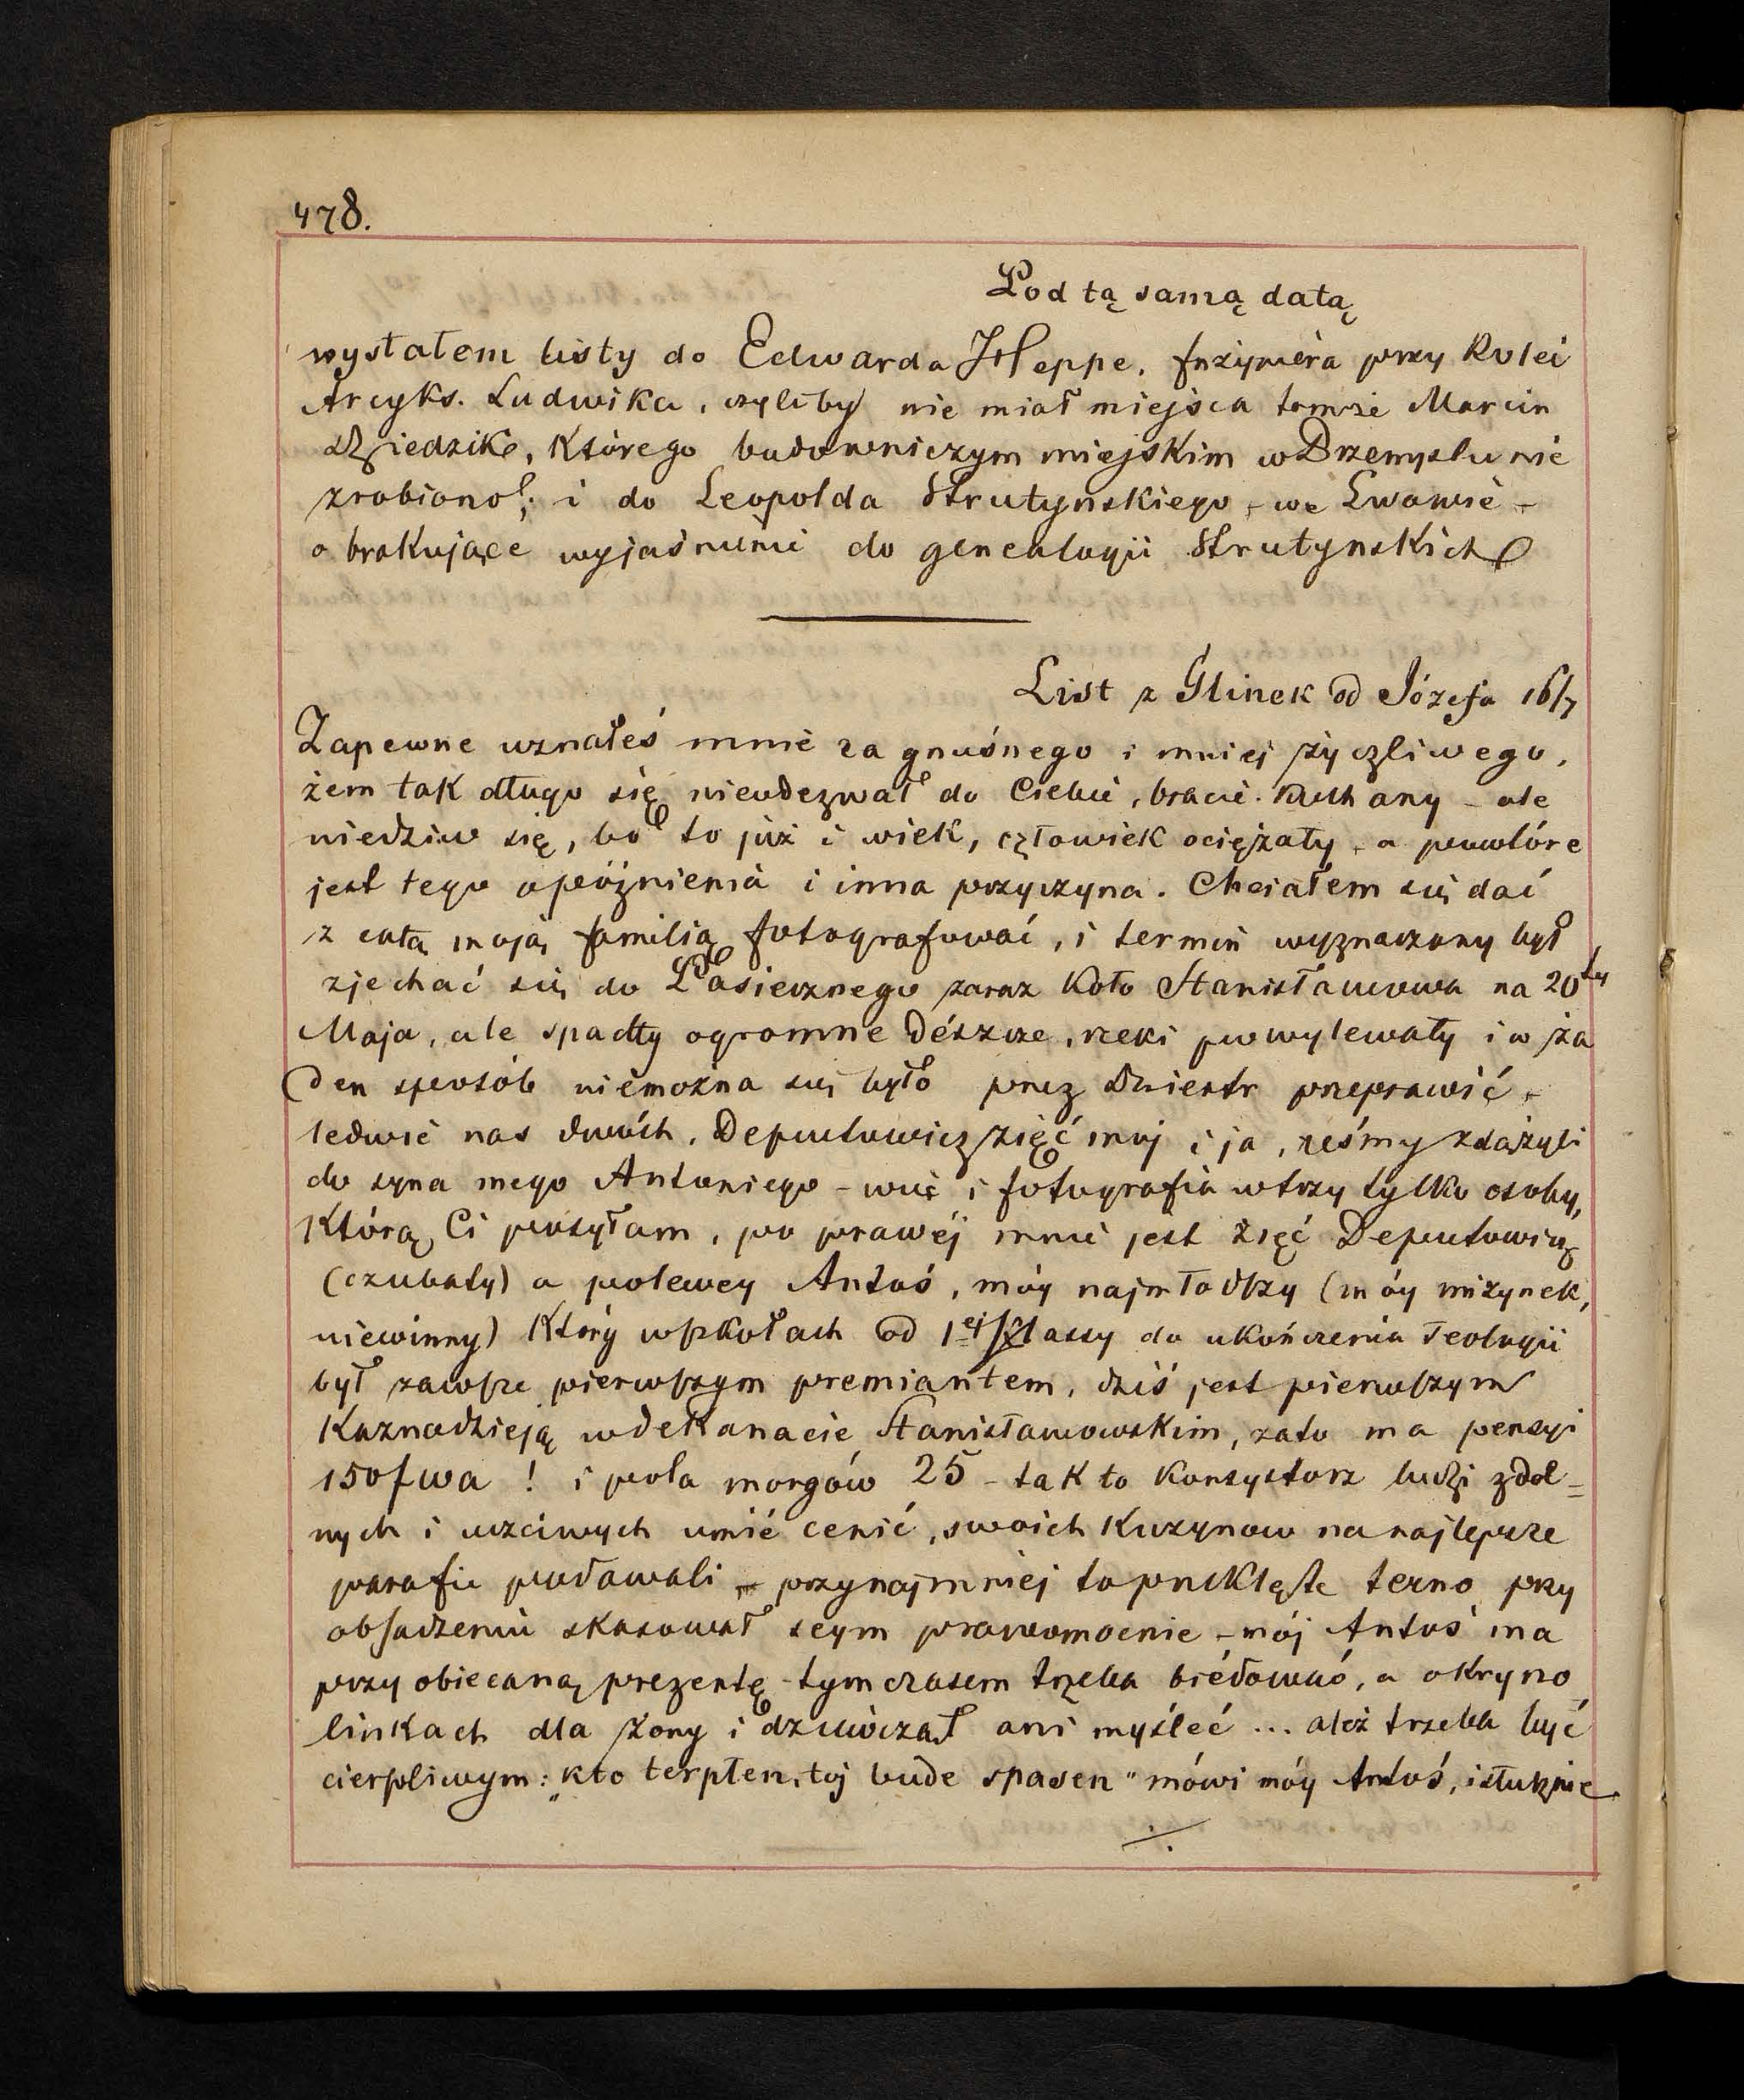 478.
Pod tą samą datą
wysłałem listy do Edwarda Heppe, Inżyniera przy Kolei
Arcyks. Ludwika, czyliby nie miał miejsca tamże Marcin
Dziedzik, którego budowniczym miejskim w Przemyslu nie
zrobiono; i do Leopolda Strutynskiego – we Lwowie –
o brakujące wyjaśnienie do genealogii Strutynskich
List z Glinek od Józefa 16/7
Zapewne uznałeś mnie za gnuśnego i mniej życzliwego,
żem tak długo się nieodezwał do Ciebie, bracie kochany – ale
niedziw się, bo to już i wiek, człowiek ociężały, a powtóre
jest tego opóźnienia i inna przyczyna. Chciałem się dać
z całą moją familią fotografować, i termin wyznaczony był
zjechać się do Pasiecznego zaraz koło Stanisławowa na 20ty
Maja, ale spadły ogromne dészcze, rzeki powylewały i w ża
den sposób niemożna się było przez Dniestr przeprawić –
ledwie nas dwóch, Deputowicz zięć mój i ja, ześmy zdążyli
do syna mego Antoniego – więc i fotografia w trzy tylko osoby,
Którą Ci posyłam, po prawéj mnie jest zięć Deputowicz
(czubaty) a polewey Antoś, móy najmłodszy (móy mizynek,
niewinny) Który w szkołach od 1ej klassy do ukończenia Teologii
był zawsze pierwszym premiantem, dziś jest pierwszym
Kaznodzieją w dekanacie Stanisławowskim, zato ma pensyi
150f wa! i pola morgów 25 – tak to Konsystorz ludzi zdol=
nych i uzciwych umié cenić, swoich Kuzynow na najlepsze
parafie podawali – przynajmniej to przeklęte terno przy
obsadzeniu skasował seym prawomocnie – mój Antoś ma
przyobiecaną prezentę – tymczasem trzeba biédować, a o kryno
linkach dla żony i dziewcząt ani myśleć ... ależ trzeba być
cierpliwym: „kto terpłen, toj bude spasen" mówi móy Antoś, i słusznie
./.